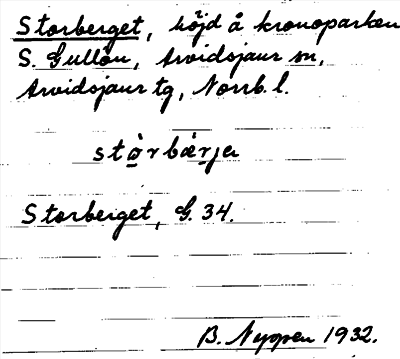 Storberget, höjd å kronoparken
S. Gullön, Arvidsjaur sn,
Arvidsjaur tg, Norrb. l.
stòrbærje
Storberget, G. 34.
B. Nyopen 1932.